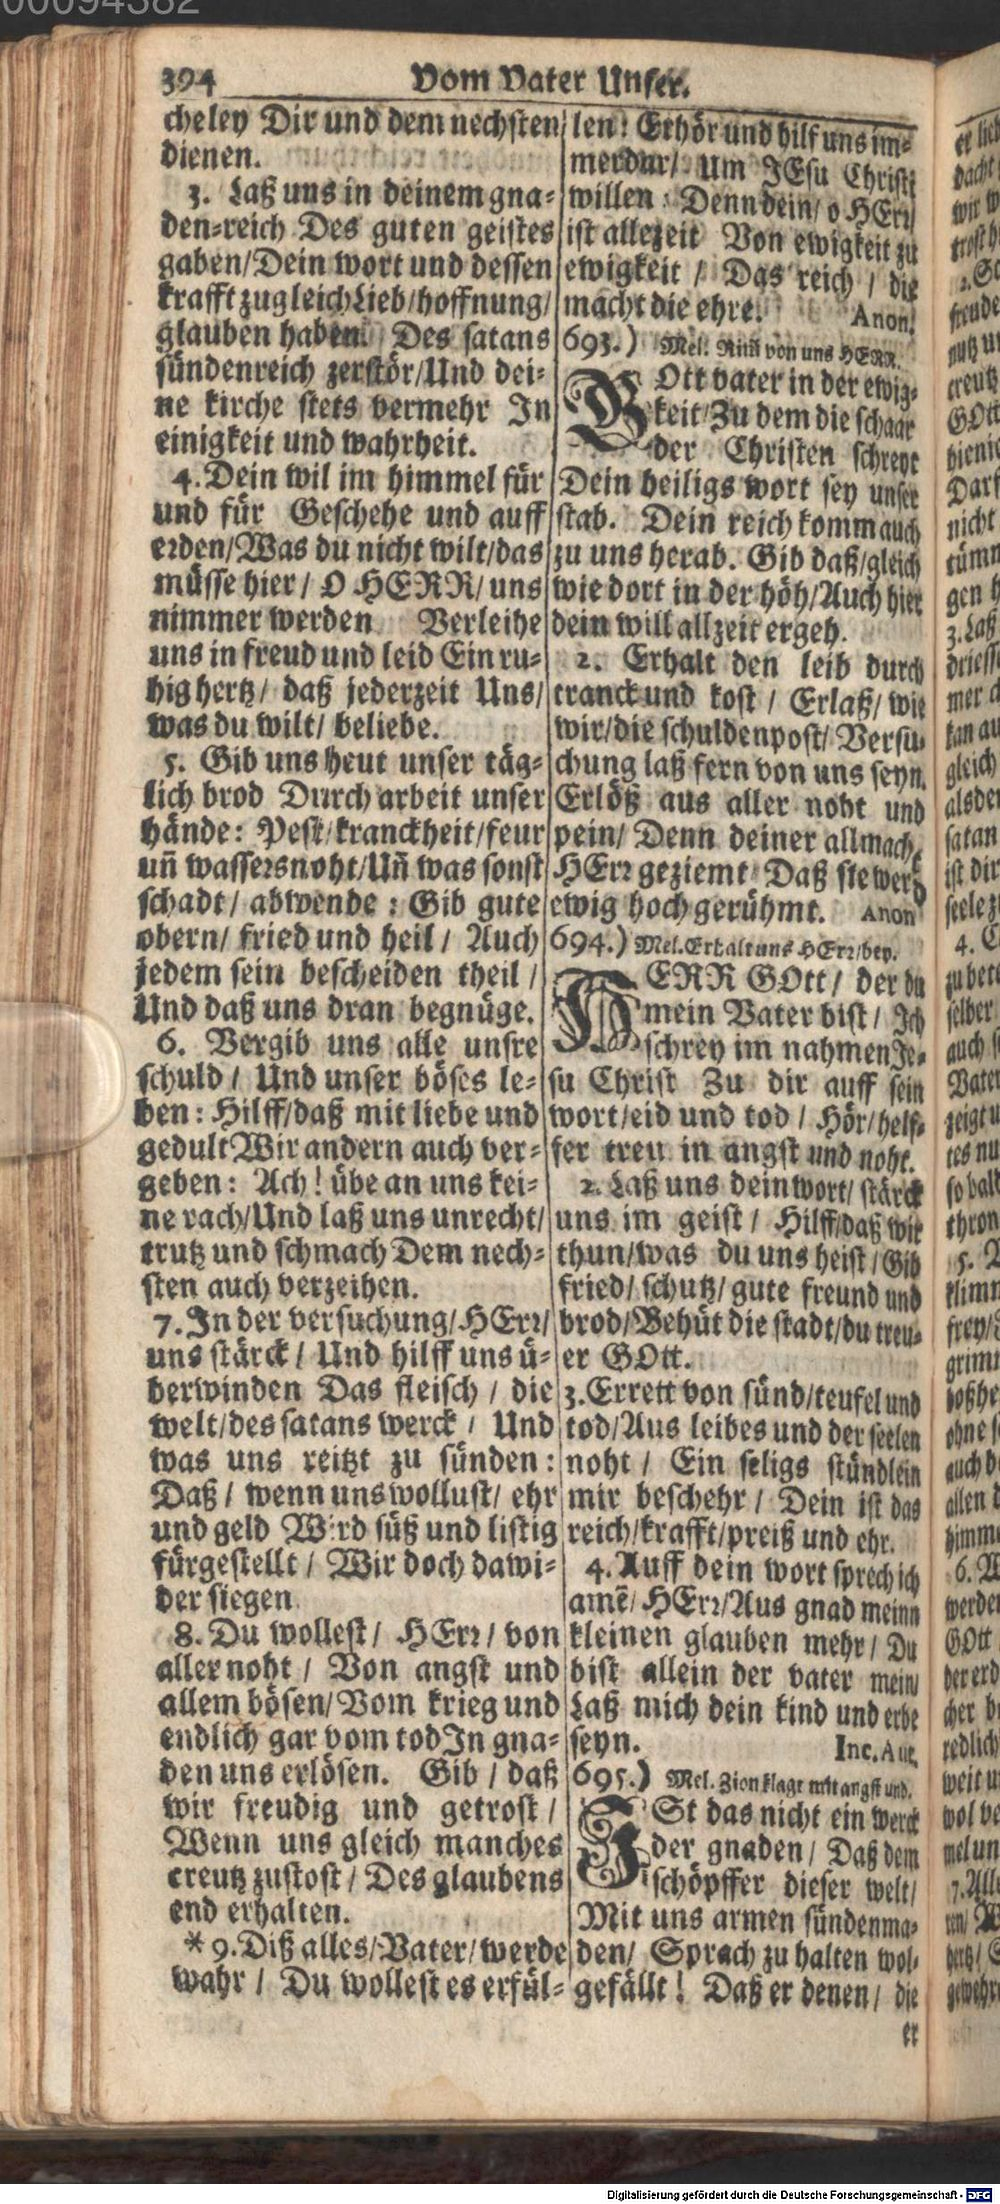 394 Vom Vater Unser.
cheley Dir und dem nechsten
dienen.
3. Laß uns in deinem gna-
den-reich Des guten geistes
gaben/Dein wort und dessen
krafft zugleich Lieb/hoffnung/
glauben haben. Des satans
sündenreich zerstör/Und dei-
ne kirche stets vermehr In
einigkeit und wahrheit.
4. Dein wil im himmel für
und für Geschehe und auff
erden/Was du nicht wilt/das
müsse hier/ O HERR/ uns
nimmer werden Verleihe
uns in freud und leid Ein ru-
hig hertz/ daß jederzeit Uns/
was du wilt/ beliebe.
5. Gib uns heut unser täg-
lich brod Durch arbeit unser
hände: Pest/kranckheit/feur
uñ wassersnoht/Uñ was sonst
schadt/ abwende: Gib gute
obern/ fried und heil/ Auch
jedem sein bescheiden theil/
Und daß uns dran begnüge.
6. Vergib uns alle unsre
schuld/ Und unser böses le-
ben: Hilff/daß mit liebe und
gedult Wir andern auch ver-
geben: Ach! übe an uns kei-
ne rach/Und laß uns unrecht/
trutz und schmach Dem nech-
sten auch verzeihen.
7. In der versuchung/HErr/
uns stärck/ Und hilff uns ü-
berwinden Das fleisch/ die
welt/des satans werck/ Und
was uns reitzt zu sünden:
Daß/ wenn uns wollust/ ehr
und geld Wird süß und listig
fürgestellt/ Wir doch dawi-
der siegen
8. Du wollest/ HErr/ von
aller noht/ Von angst und
allem bösen/Vom krieg und
endlich gar vom tod In gna-
den uns erlösen. Gib/ daß
wir freudig und getrost/
Wenn uns gleich manches
creutz zustost/ Des glaubens
end erhalten.
* 9. Diß alles/Vater/werde
wahr/ Du wollest es erfül-
len: Erhör und hilf uns im-
merdar/ Um JEsu Christi
willen: Denn dein/ o HErr/
ist allezeit Von ewigkeit zu
ewigkeit/ Das reich/ die
macht die ehre. Anon.
693.) Mel. Nim von uns HERR.
GOtt vater in der ewig-
keit/Zu dem die schaar
der Christen schreyt
Dein heiligs wort sey unser
stab. Dein reich komm auch
zu uns herab. Gib daß/gleich
wie dort in der höh/Auch hier
dein will allzeit ergeh.
2. Erhalt den leib durch
tranck und kost/ Erlaß/ wie
wir/die schuldenpost/ Versu-
chung laß fern von uns seyn.
Erlöß aus aller noht und
pein/ Denn deiner allmacht
HErr geziemt Daß sie werd
ewig hoch gerühmt. Anon
694.) Mel. Erhalt uns HErr/bey.
HERR GOtt/ der du
mein Vater bist/ Ich
schrey im nahmen Je-
su Christ Zu dir auff sein
wort/eid und tod/ Hör/helf-
fer treu in angst und noht.
2. Laß uns dein wort/ stärck
uns im geist/ Hilff/daß wir
thun/was du uns heist/Gib
fried/ schutz/ gute freund und
brod/Behüt die stadt/du treu-
er GOtt.
3. Errett von sünd/teufel und
tod/Aus leibes und der seelen
noht/ Ein seligs stündlein
mir beschehr/ Dein ist das
reich/krafft/preiß und ehr.
4. Auff dein wort sprech ich
amē/ HErr/Aus gnad meinn
kleinen glauben mehr/ Du
bist allein der vater mein/
Laß mich dein kind und erbe
seyn. Inc. Aut.
695.) Mel. Zion klagt mit angst und.
ISt das nicht ein werck
der gnaden/ Daß dem
schöpffer dieser welt/
Mit uns armen sündenma-
den/ Sprach zu halten wol-
gefällt! Daß er denen/ die
er
Digitalisierung gefördert durch die Deutsche Forschungsgemeinschaft - DFG